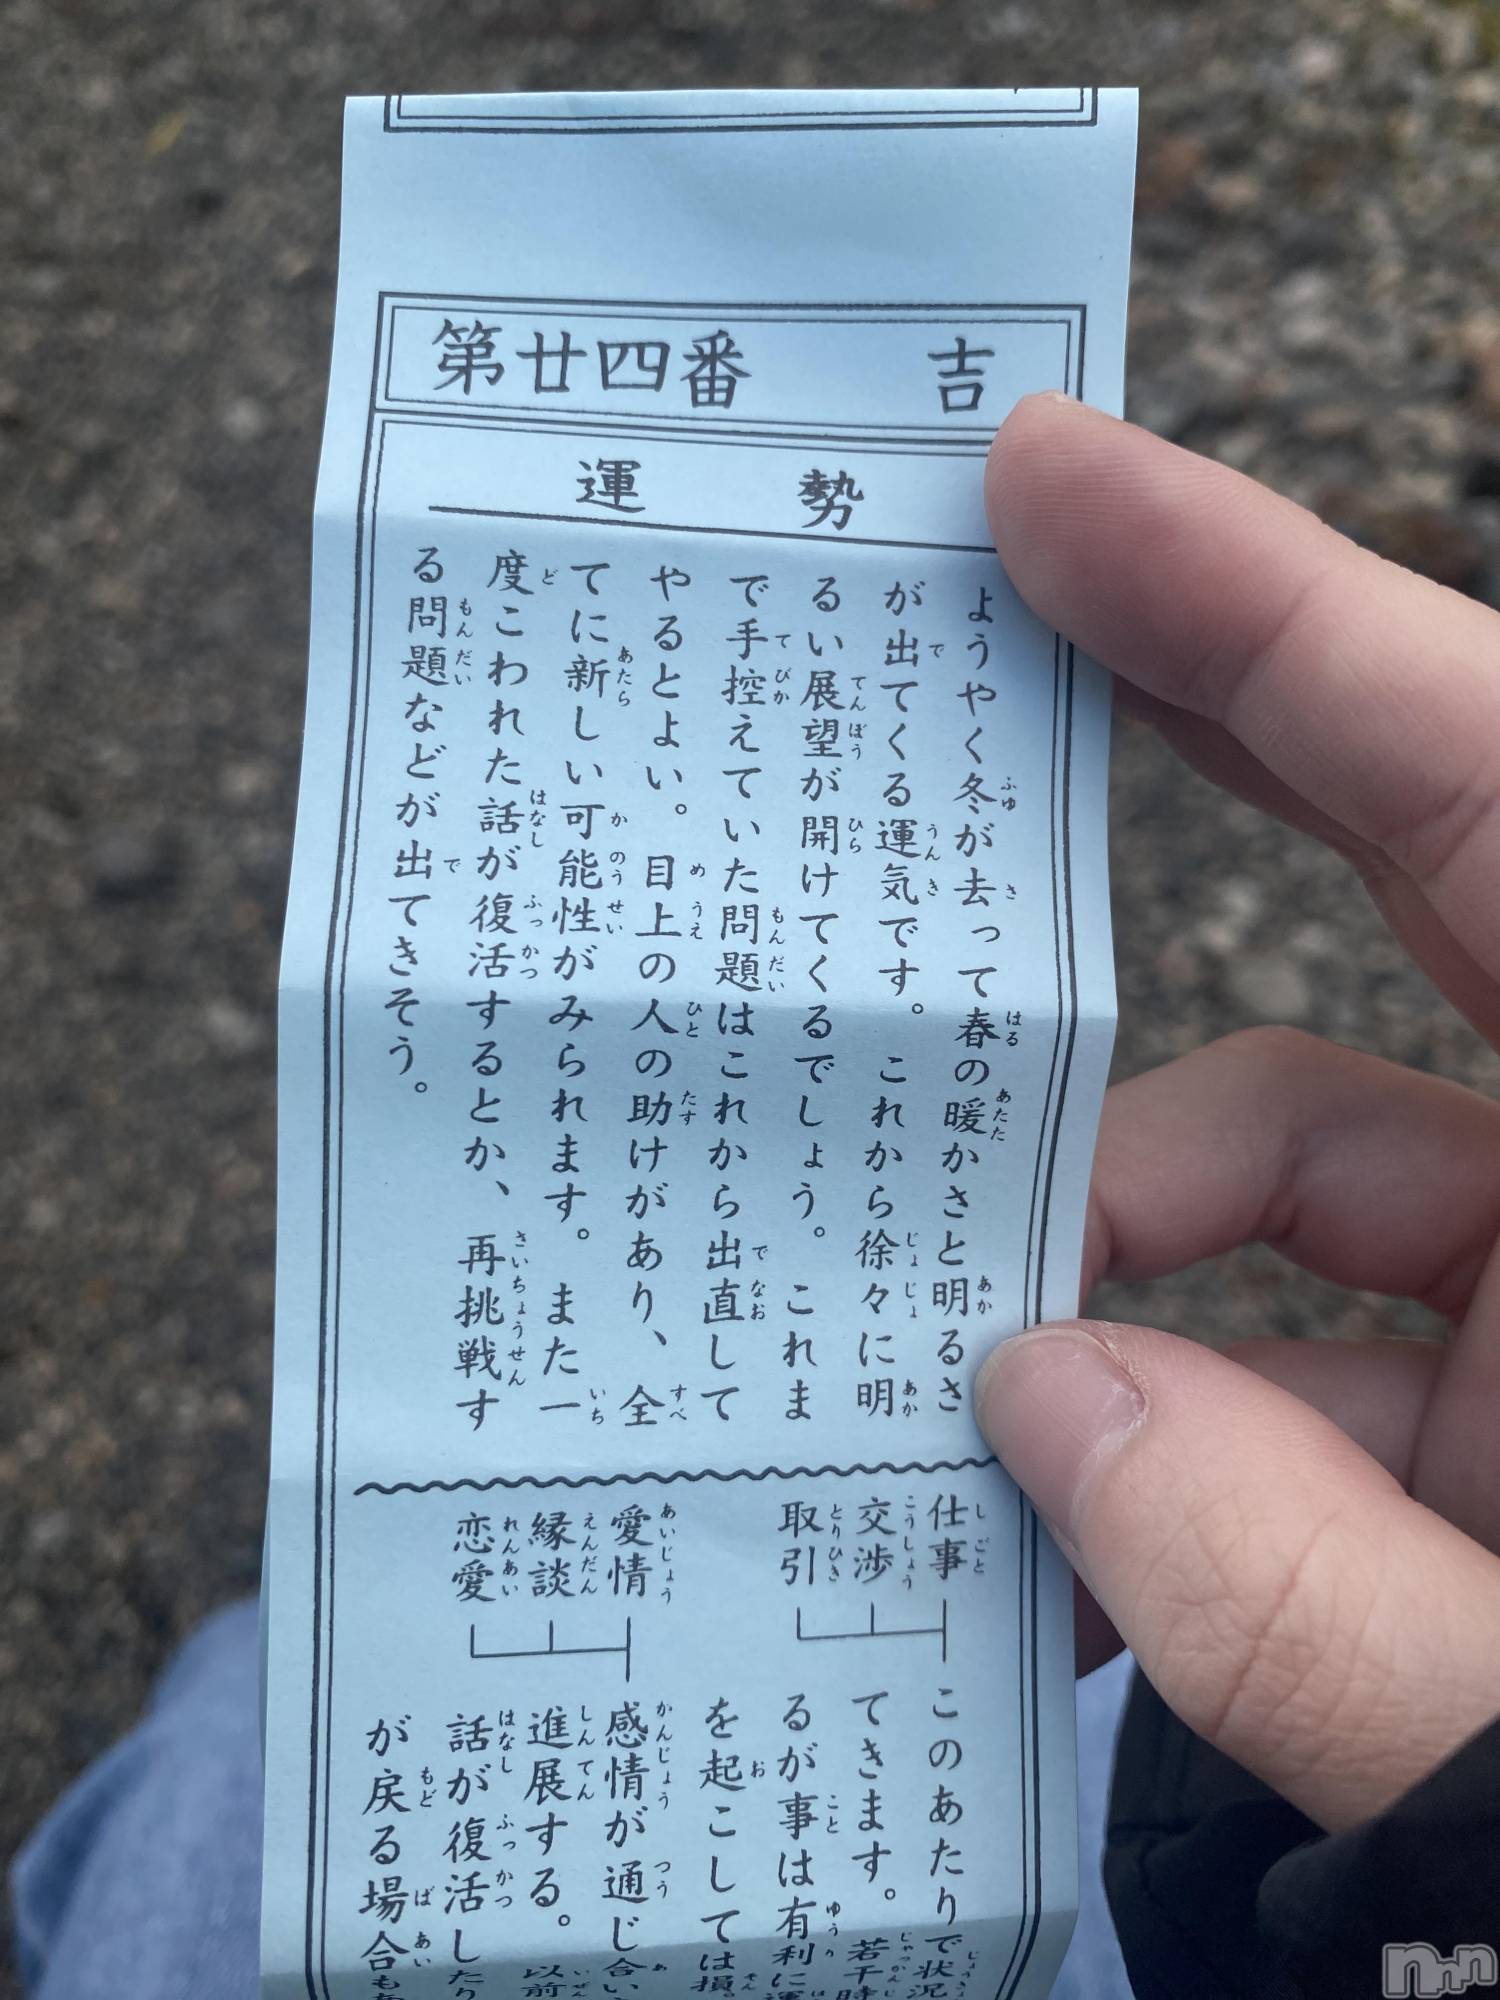 第廿四番　吉
運勢
ようやく冬が去って春の暖かさと明るさ
が出てくる運気です。これから徐々に明
るい展望が開けてくるでしょう。これま
で手控えていた問題はこれから出直して
やるとよい。目上の人の助けがあり、全
てに新しい可能性がみられます。また一
度こわれた話が復活するとか、再挑戦す
る問題などが出てきそう。
仕事
交渉
取引
このあたりで状況
てきます。若干時
るが事は有利に運
を起こしては損。
愛情
縁談
恋愛
感情が通じ合い
進展する。以前
話が復活したり
が戻る場合もあ